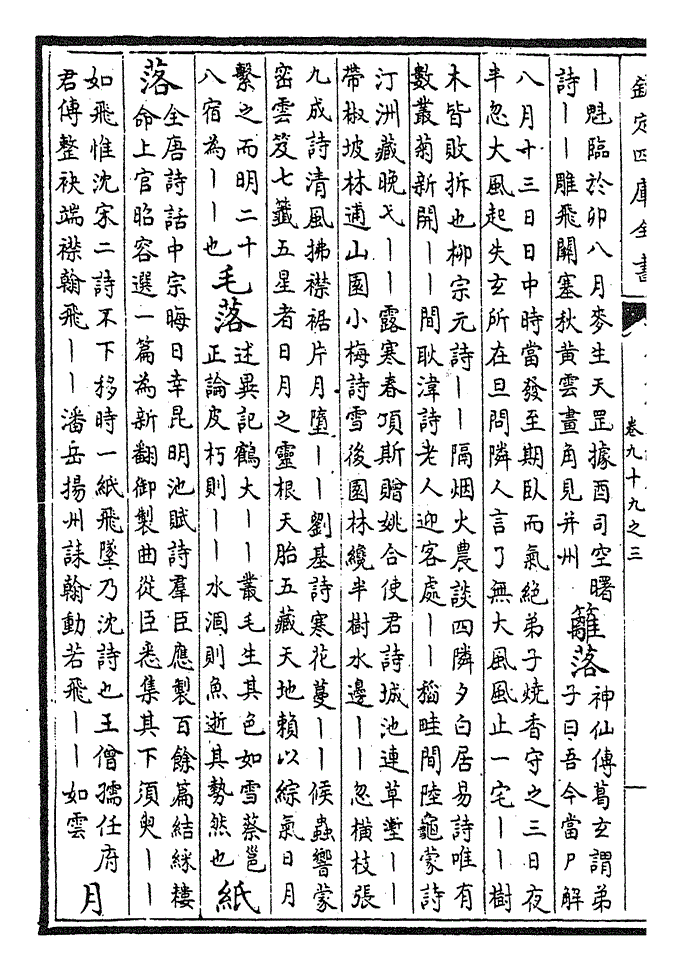 欽定四庫全書
卷九十九之三
丨魁臨於卯八月麥生天罡據酉司空曙
詩丨丨雕飛關塞秋黃雲畫角見并州
籬落
神仙傳葛玄謂弟
子曰吾今當尸解
八月十三日日中時當發至期臥而氣絕弟子燒香守之三日夜
半忽大風起失玄所在旦問隣人言了無大風風止一宅丨丨樹
木皆敗拆也柳宗元詩丨丨隔烟火農談四隣夕白居易詩唯有
數叢菊新開丨丨間耿湋詩老人迎客處丨丨稻畦間陸龜蒙詩
汀洲藏晚弋丨丨露寒春項斯贈姚合使君詩城池連草壍丨丨
帶椒坡林逋山園小梅詩雪後園林纔半樹水邊丨丨忽橫枝張
九成詩清風拂襟裾片月墮丨丨劉基詩寒花蔓丨丨候蟲響蒙
密雲笈七籤五星者日月之靈根天胎五藏天地賴以綜氣日月
繫之而明二十
八宿為丨丨也
毛落
述異記鶴大丨丨叢毛生其色如雪蔡邕
正論皮朽則丨丨水涸則魚逝其勢然也
紙
落
全唐詩話中宗晦日幸昆明池賦詩羣臣應製百餘篇結綵樓
命上官昭容選一篇為新翻御製曲從臣悉集其下須臾丨丨
如飛惟沈宋二詩不下移時一紙飛墜乃沈詩也王僧孺任府
君傳整袂端襟翰飛丨丨潘岳揚州誄翰動若飛丨丨如雲
月